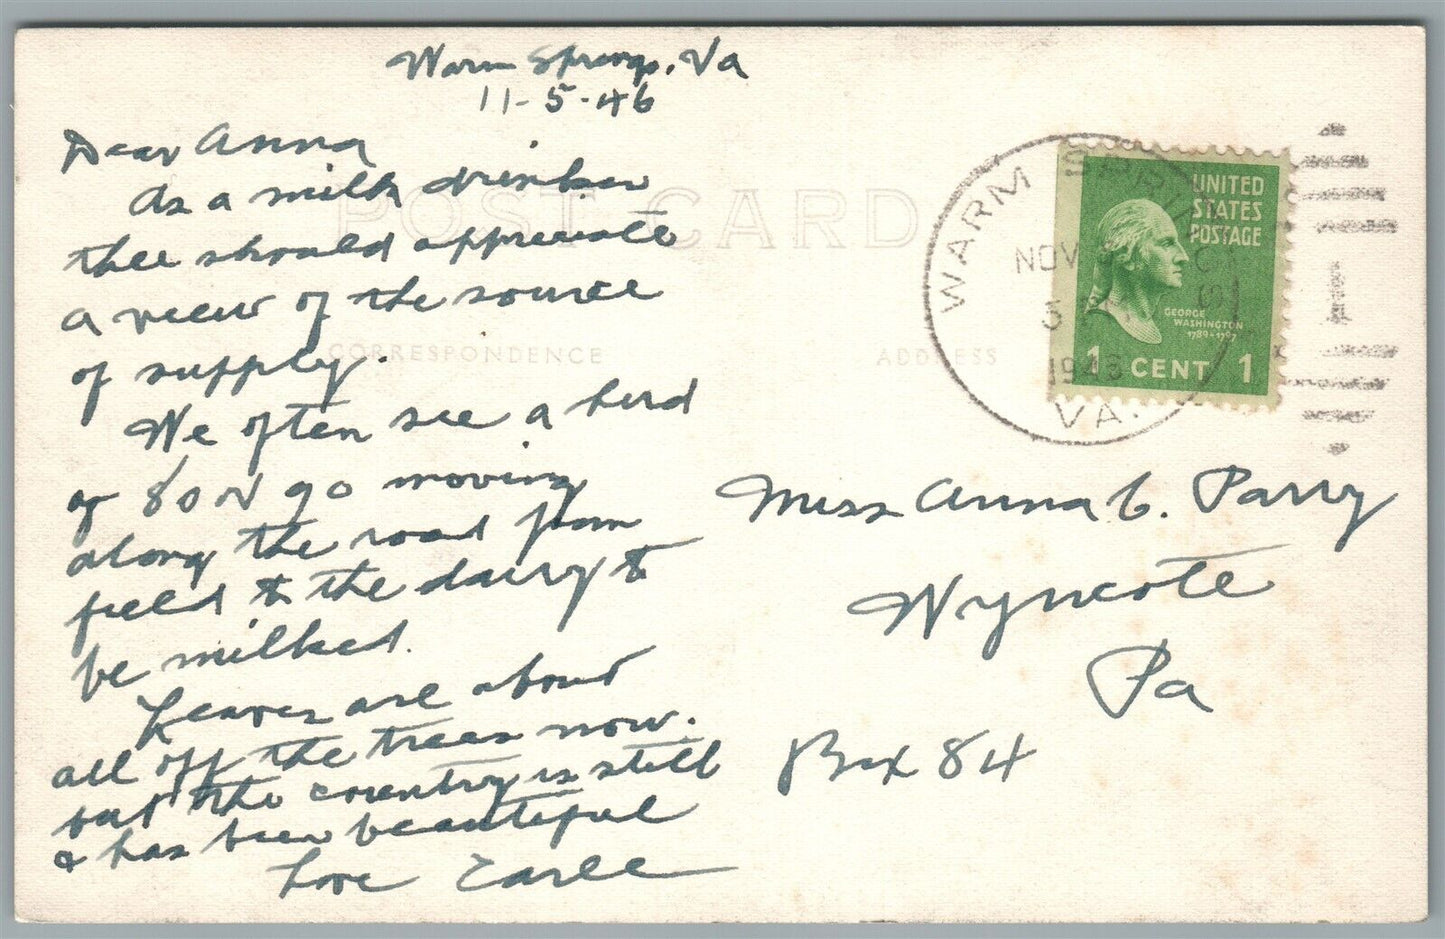 Warm Springs, Va
11-5-46
Dear Anna
As a milk drinker
thee should appreciate
a view of the source
of supply.
We often see a herd
of 80 or 90 moving
along the road from
field to the dairy to
be milked.
Leaves are about
all off the trees now.
but the country is still
& has been beautiful
Love Earle
POST CARD
CORRESPONDENCE
ADDRESS
WARM SPRINGS
NOV
1946
VA.
UNITED
STATES
POSTAGE
GEORGE
WASHINGTON
1789-1797
1 CENT 1
Miss Anna C. Parry
Wyncote
Pa
Box 84